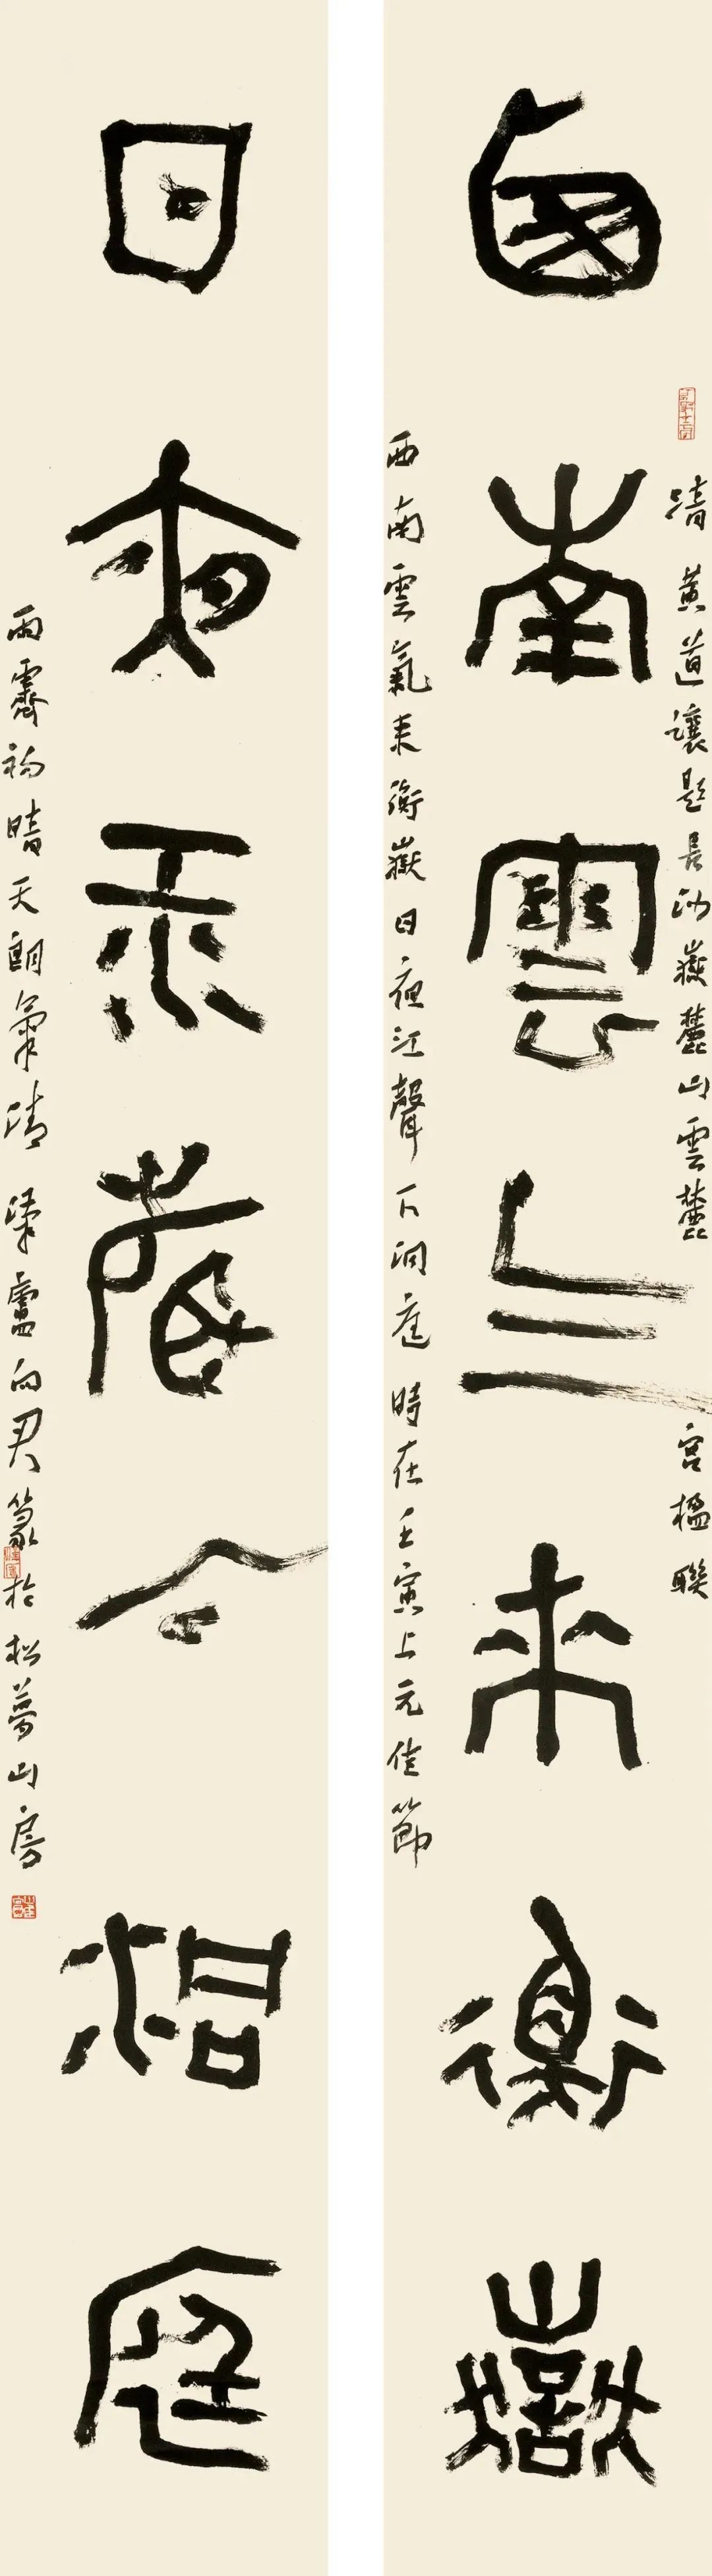 西南雲氣來衡嶽
清黃道讓題長沙嶽麓山雲麓宮楹聯
西南雲氣來衡嶽日夜江聲下洞庭時在壬寅上元佳節
日夜江聲下洞庭
雨霽初晴天朗氣清廬向篆於松夢山房